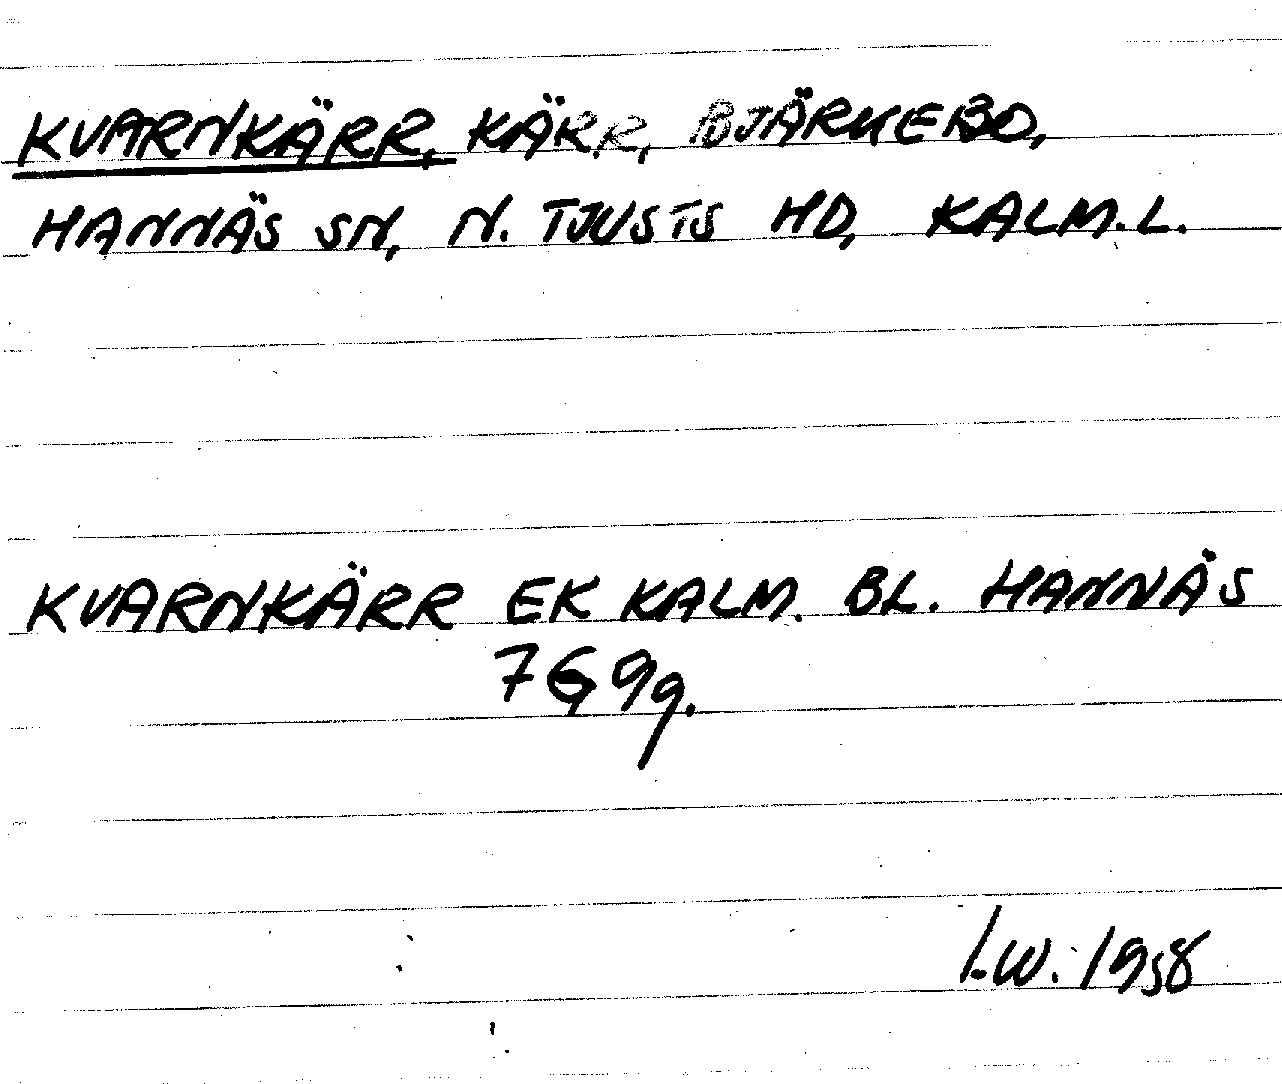 KVARNKÄRR, KÄRR, BJÄRKEBO,
HANNÄS SN, N. TJUSTS HD, KALM.L.
KVARNKÄRR EK KALM. BL. HANNÄS
7G 9g.
I.W. 1958